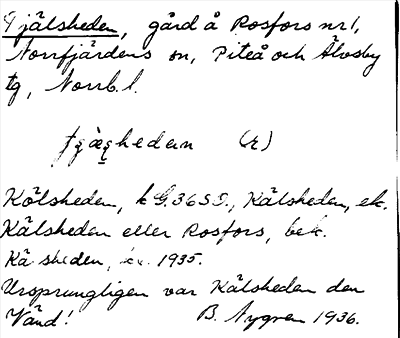 Fjälsheden, gård å Rosfors nr 1,
Norrfjärdens sn, Piteå och Älvsby
tg, Norrb. l.
(r)
Kälsheden, k G. 36 S.O., Kälsheden, ek.
Kälsheden eller Rosfors, bek.
sheden, 1935.
Ursprungligen var Kälsheden den
Vänd! B. Nygren 1936.